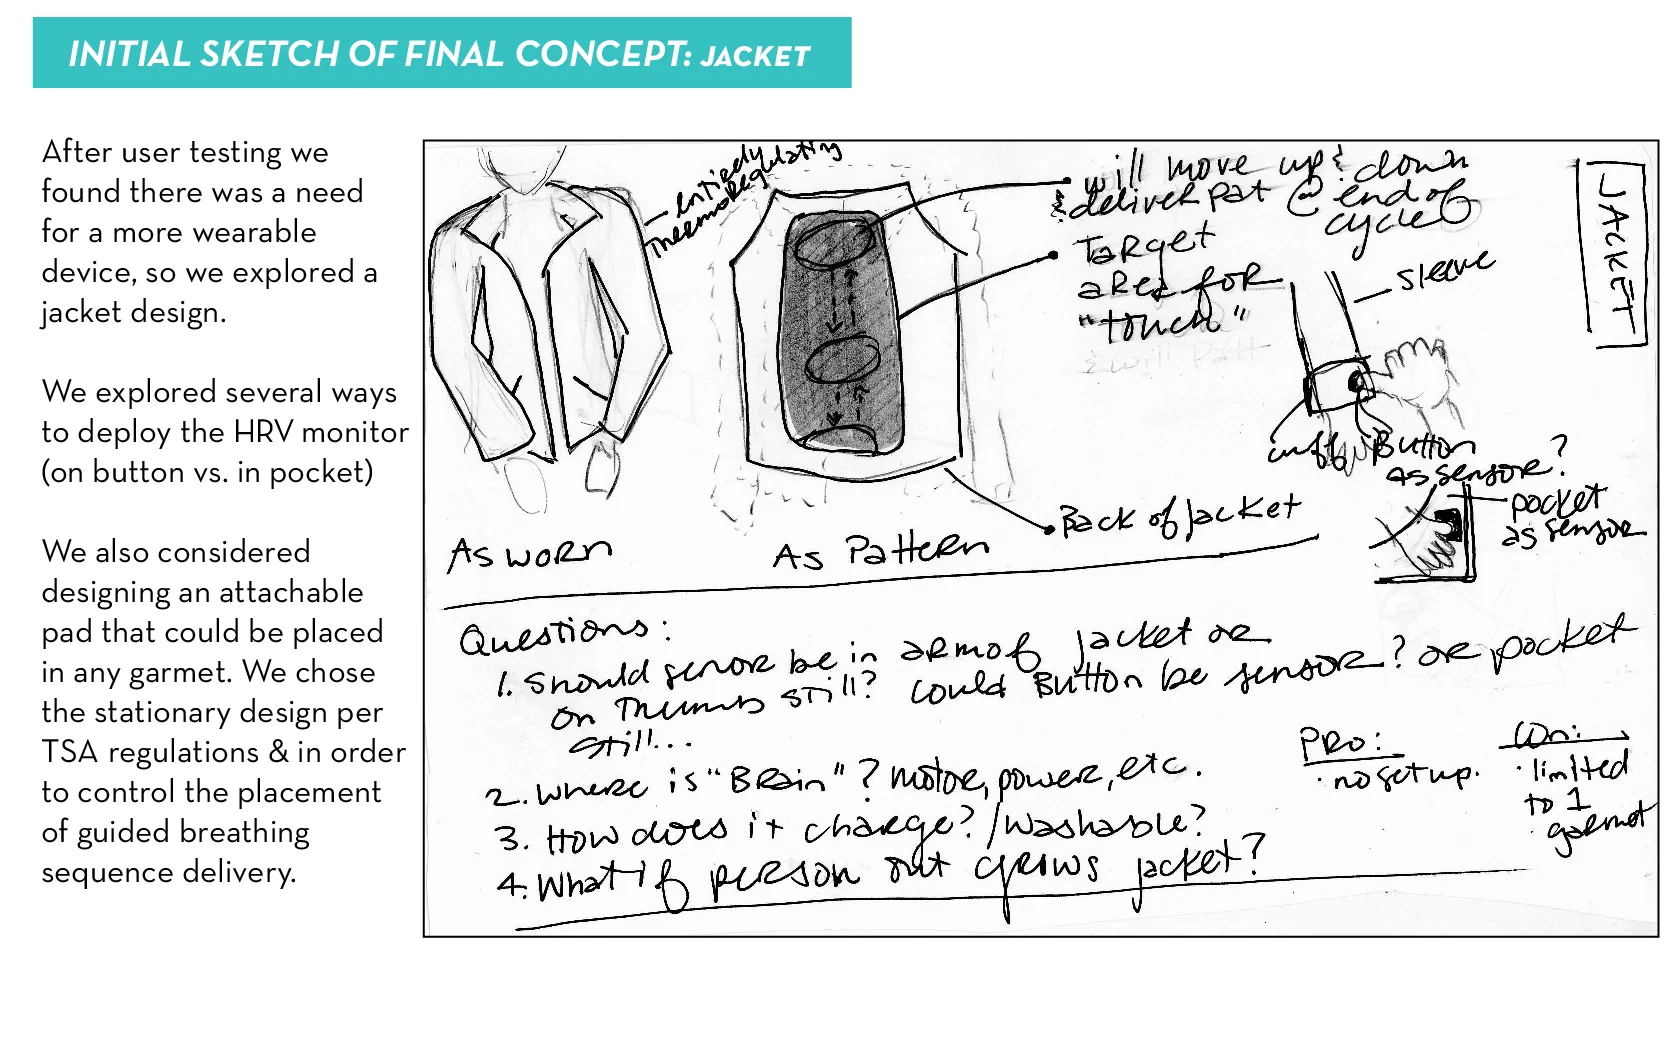 INITIAL SKETCH OF FINAL CONCEPT: JACKET
After user testing we
found there was a need
for a more wearable
device, so we explored a
jacket design.
We explored several ways
to deploy the HRV monitor
(on button vs. in pocket)
We also considered
designing an attachable
pad that could be placed
in any garmet. We chose
the stationary design per
TSA regulations & in order
to control the placement
of guided breathing
sequence delivery.
entirely
thermoregulating
will move up & down
& deliver pat @ end of
cycle
Target
area for
"touch"
sleeve
JACKET
cuff
Button
as sensor?
pocket
as sensor
Back of jacket
As worn
As Pattern
Questions:
1. Should sensor be in arm of jacket or
on Thumb still? could Button be sensor? or pocket
still...
2. where is "Brain"? motor, power, etc.
3. How does it charge? / washable?
4. What if person out grows jacket?
PRO:
· no set up.
Con:
· limited
to 1
garmet